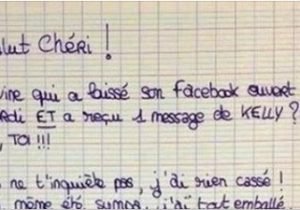 lut Chéri !
vine qui a laissé son facebook ouvert
rdi ET a reçu 1 message de KELLY ?
, TOI !!!
ne t'inquiète pas, j'ai rien cassé !
même été sympa, j'ai tout emballé